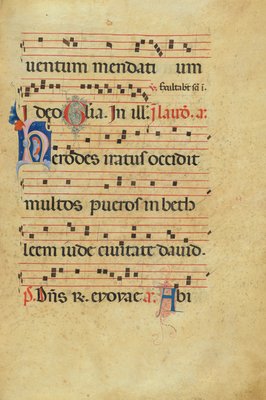 uentum mendati um
v̄. Exultabt sc̄i i.
I deo Gl̄ia. In ill. I laud̄. a.
Herodes natus occidit
multos pueros in beth
leem iude ciuitate dauid.
p. Dn̄s R. exorac̄ a. Abi